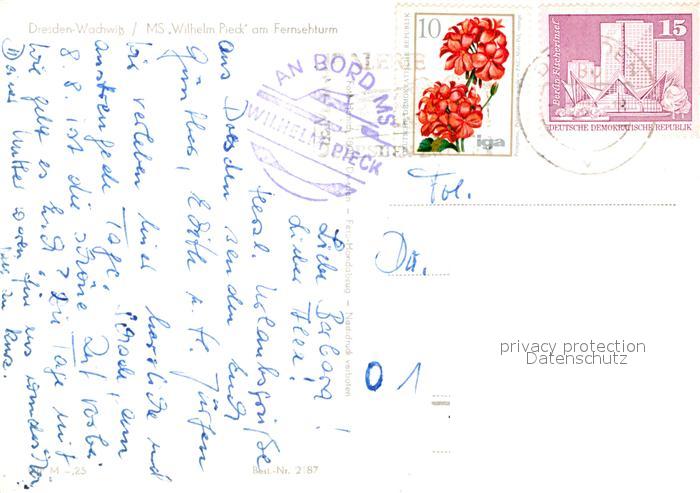 Dresden-Wachwitz / MS „Wilhelm Pieck" am Fernsehturm
10
DEUTSCHE DEMOKRATISCHE REPUBLIK
iga
15
Berlin Fischerinsel
DEUTSCHE DEMOKRATISCHE REPUBLIK
AN BORD MS
WILHELM PIECK
Liebe Barbara!
Lieber
Herzl. Urlaubsgrüße
aus Dresden senden Euch
Günther, Edith u. H. Jürgen
Wir verleben hier herrliche und
anstrengende Tage. am
8. 8. ist die schöne Zeit vorbei.
Wie geht es Euch? Die Tage mit
Deiner Mutter waren für uns
zu kurz.
Fol.
Du.
01
privacy protection
Datenschutz
M -,25
Best.-Nr. 2187
Nachdruck verboten